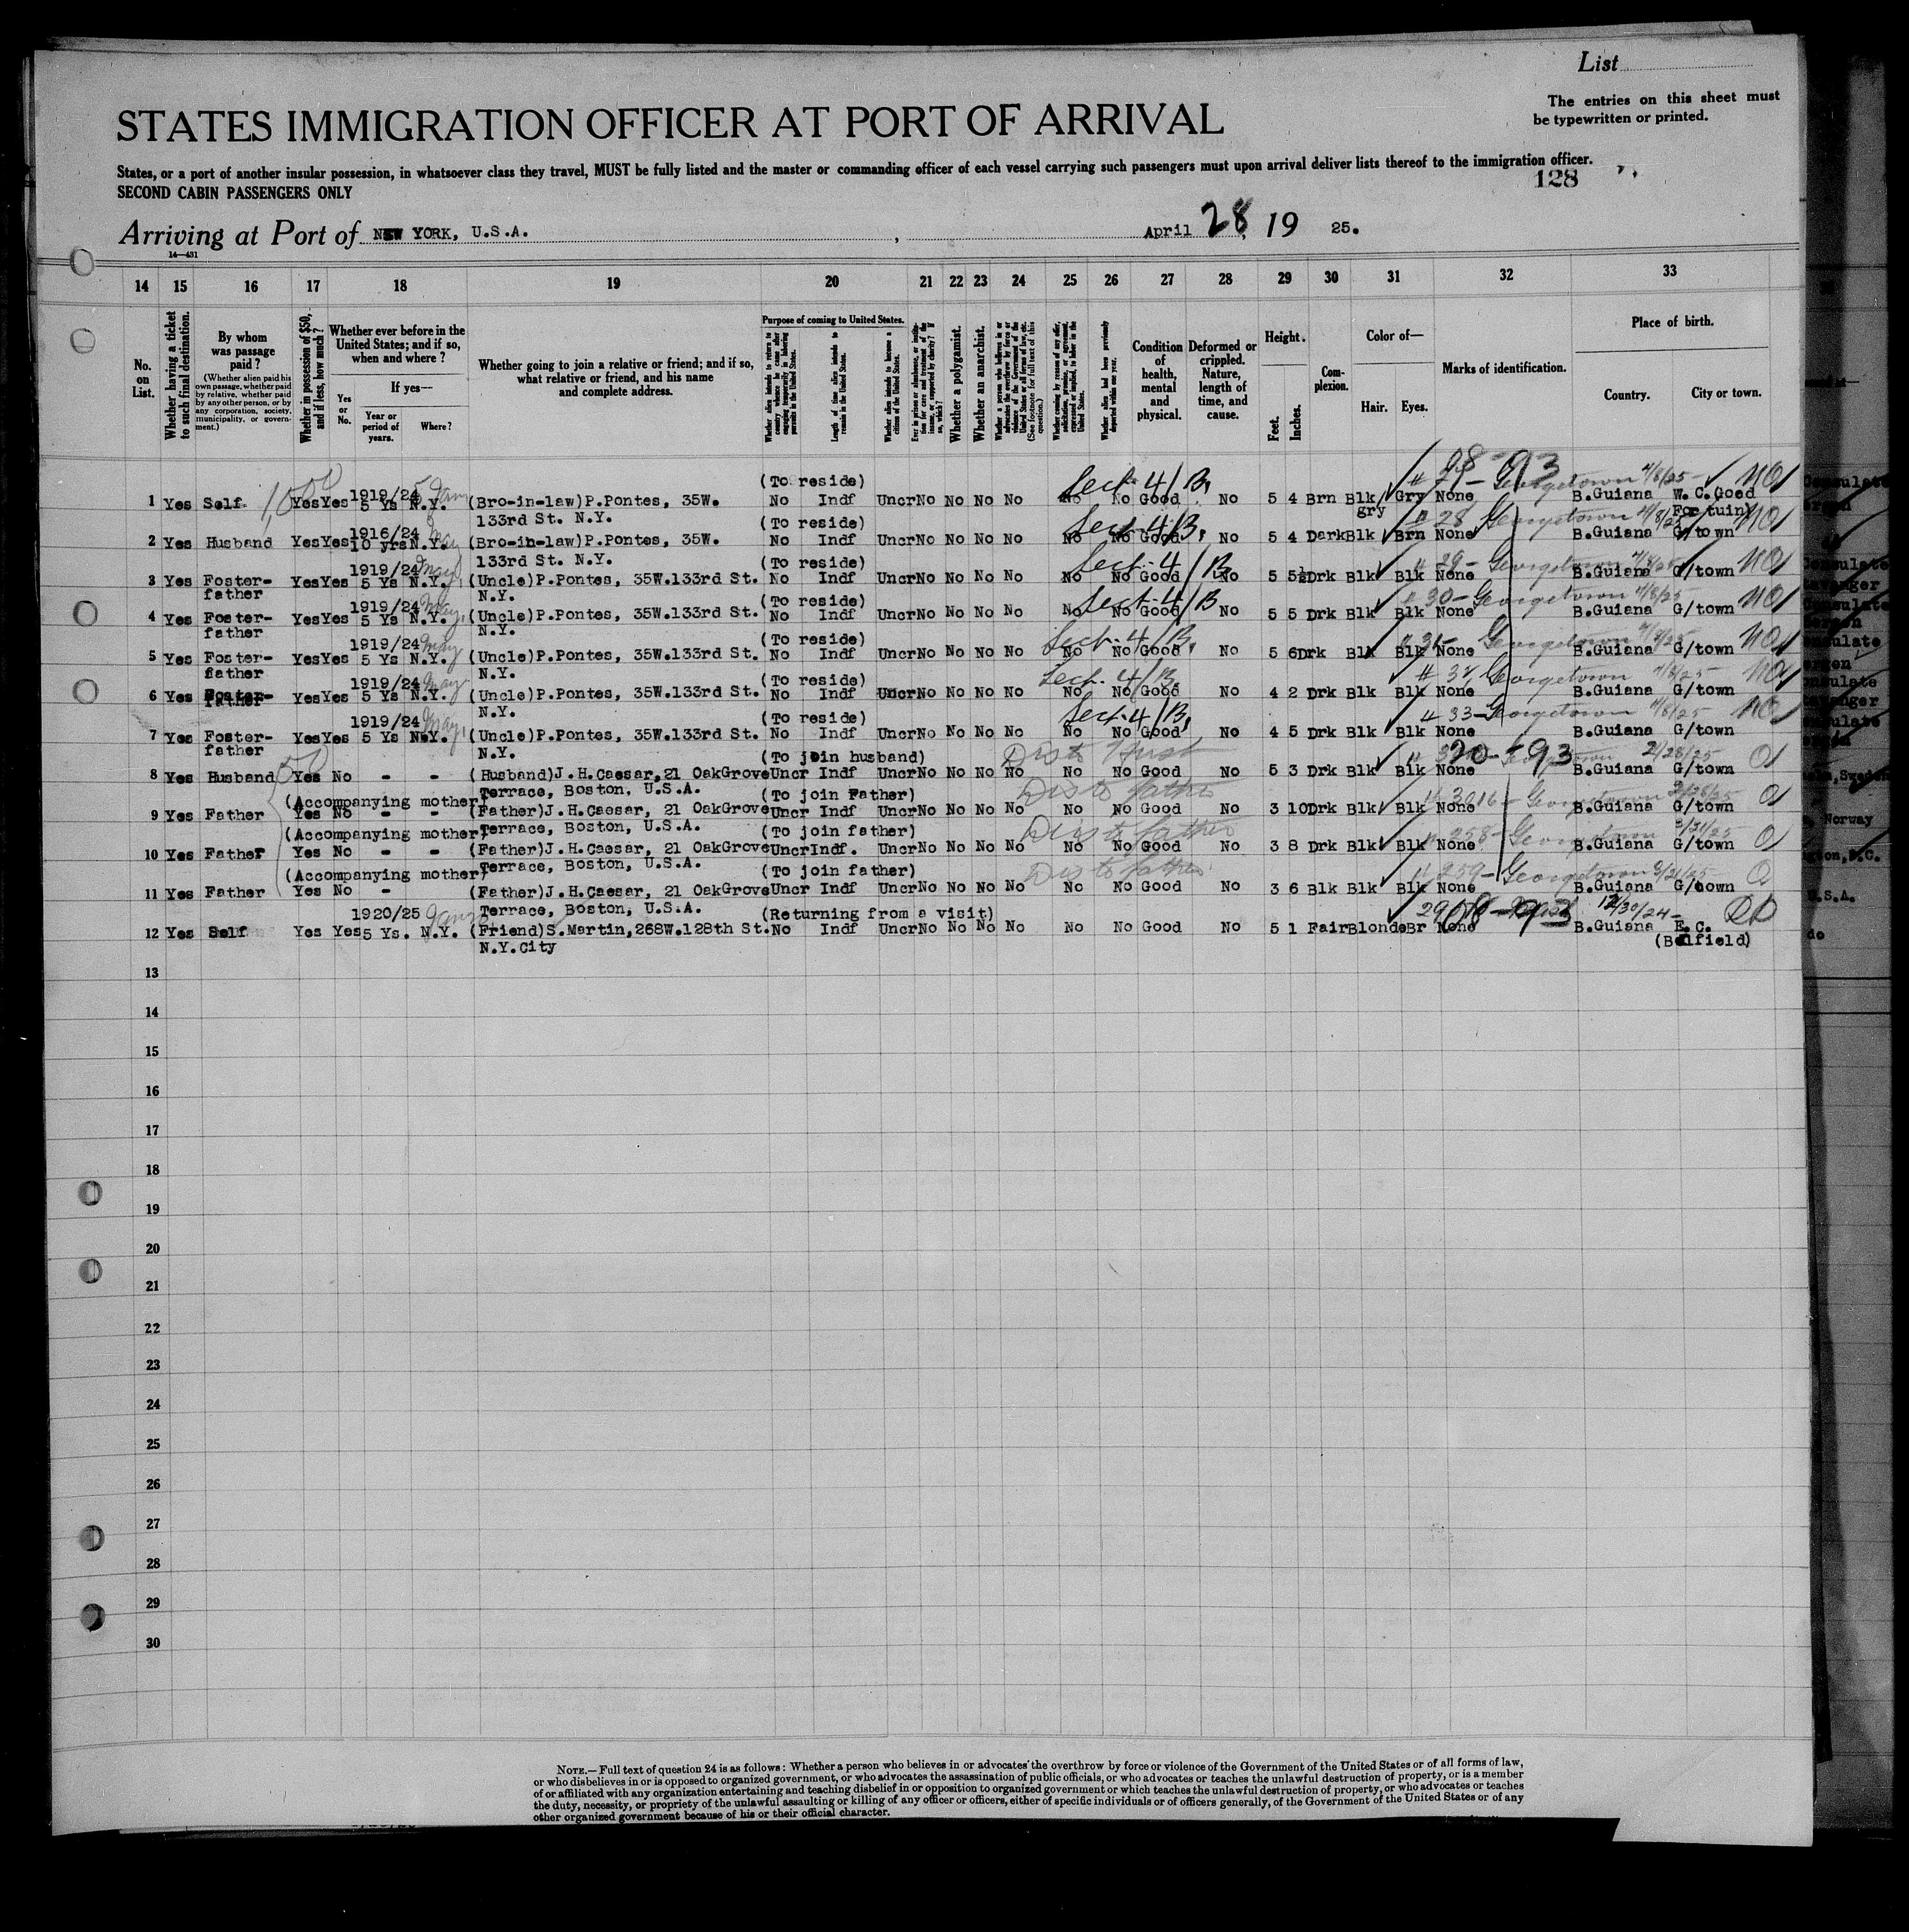 List
The entries on this sheet must
be typewritten or printed.
STATES IMMIGRATION OFFICER AT PORT OF ARRIVAL
States, or a port of another insular possession, in whatsoever class they travel, MUST be fully listed and the master or commanding officer of each vessel carrying such passengers must upon arrival deliver lists thereof to the immigration officer.
SECOND CABIN PASSENGERS ONLY
128
Arriving at Port of NEW YORK, U.S.A. , April 28, 19 25.
14—431
14 15 16 17 18 19 20 21 22 23 24 25 26 27 28 29 30 31 32 33
No. on List.
Whether having a ticket to such final destination.
By whom was passage paid?
(Whether alien paid his own passage, whether paid by relative, whether paid by any other person, or by any corporation, society, municipality, or government.)
Whether in possession of $50, and if less, how much?
Whether ever before in the United States; and if so, when and where?
Yes or No.
If yes—
Year or period of years.
Where?
Whether going to join a relative or friend; and if so, what relative or friend, and his name and complete address.
Purpose of coming to United States.
Length of time alien intends to remain in the United States.
Whether alien intends to become a citizen of the United States.
Whether a polygamist.
Whether an anarchist.
Whether alien had been previously deported within one year.
Condition of health, mental and physical.
Deformed or crippled. Nature, length of time, and cause.
Height.
Feet. Inches.
Complexion.
Color of—
Hair. Eyes.
Marks of identification.
Place of birth.
Country. City or town.
(To reside) Sect 4/B. 98-93 Georgetown 4/8/25
1 Yes Self Yes Yes 1919/24 5 Ys N.Y. (Bro-in-law)P.Pontes, 35W. No Indf Uncr No No No No No No Good No 5 4 Brn Blk Gry None B.Guiana W.C.Good
133rd St. N.Y. gry Fortuin)
(To reside) Sect 4/B. # 28 Georgetown 4/8/25
2 Yes Husband Yes Yes 1916/24 10 yrs N.Y. (Bro-in-law)P.Pontes, 35W. No Indf Uncr No No No No No No Good No 5 4 Dark Blk Brn None B.Guiana G/town
133rd St. N.Y.
(To reside) Sect. 4/B # 29- Georgetown
3 Yes Foster- Yes Yes 1919/24 5 Ys N.Y. (Uncle)P.Pontes, 35W.133rd St. No Indf Uncr No No No No No No Good No 5 5½ Drk Blk Blk None B.Guiana G/town
father N.Y.
(To reside) Sect. 4/B # 30- Georgetown 4/8/25
4 Yes Foster- Yes Yes 1919/24 5 Ys N.Y. (Uncle)P.Pontes, 35W.133rd St. No Indf Uncr No No No No No No Good No 5 5 Drk Blk Blk None B.Guiana G/town
father N.Y.
(To reside) Sect. 4/B. # 31- Georgetown
5 Yes Foster- Yes Yes 1919/24 5 Ys N.Y. (Uncle)P.Pontes, 35W.133rd St. No Indf Uncr No No No No No No Good No 5 6 Drk Blk Blk None B.Guiana G/town
father N.Y.
(To reside) Sect. 4/B. # 32 Georgetown 4/8/25
6 Yes Foster- Yes Yes 1919/24 5 Ys N.Y. (Uncle)P.Pontes, 35W.133rd St. No Indf Uncr No No No No No No Good No 4 2 Drk Blk Blk None B.Guiana G/town
father N.Y.
(To reside) Sect. 4/B. # 33- Georgetown 4/8/25
7 Yes Foster- Yes Yes 1919/24 5 Ys N.Y. (Uncle)P.Pontes, 35W.133rd St. No Indf Uncr No No No No No No Good No 4 5 Drk Blk Blk None B.Guiana G/town
father N.Y.
(To join husband) 20-93 2/28/25
8 Yes Husband Yes No - - (Husband)J.H.Caesar,21 OakGrove Uncr Indf Uncr No No No No No No Good No 5 3 Drk Blk Blk None B.Guiana G/town
Terrace, Boston, U.S.A.
(Accompanying mother) (To join Father) Dis to father
9 Yes Father Yes No - - (Father)J.H.Caesar, 21 OakGrove Uncr Indf Uncr No No No No No No Good No 3 10 Drk Blk Blk None B.Guiana G/town
Terrace, Boston, U.S.A.
(Accompanying mother) (To join father) Dis to father # 258- Georgetown 3/21/25
10 Yes Father Yes No - - (Father)J.H.Caesar, 21 OakGrove Uncr Indf. Uncr No No No No No No Good No 3 8 Drk Blk Blk None B.Guiana G/town
Terrace, Boston, U.S.A.
(Accompanying mother) (To join father) Dis to father # 259- Georgetown 3/21/25
11 Yes Father Yes No - (Father)J.H.Caesar, 21 OakGrove Uncr Indf Uncr No No No No No No Good No 3 6 Blk Blk Blk None B.Guiana G/town
Terrace, Boston, U.S.A.
(Returning from a visit) 12/30/24
12 Yes Self Yes Yes 1920/25 5 Ys. N.Y. (Friend)S.Martin,268W.128th St. No Indf Uncr No No No No No No Good No 5 1 Fair Blonde Br None B.Guiana E.C.
N.Y.City (Belfield)
13
14
15
16
17
18
19
20
21
22
23
24
25
26
27
28
29
30
NOTE.—Full text of question 24 is as follows: Whether a person who believes in or advocates the overthrow by force or violence of the Government of the United States or of all forms of law,
or who disbelieves in or is opposed to organized government, or who advocates the assassination of public officials, or who advocates or teaches the unlawful destruction of property, or is a member
of or affiliated with any organization entertaining and teaching disbelief in or opposition to organized government or which teaches the unlawful destruction of property, or who advocates or teaches
the duty, necessity, or propriety of the unlawful assaulting or killing of any officer or officers, either of specific individuals or of officers generally, of the Government of the United States or of any
other organized government because of his or their official character.